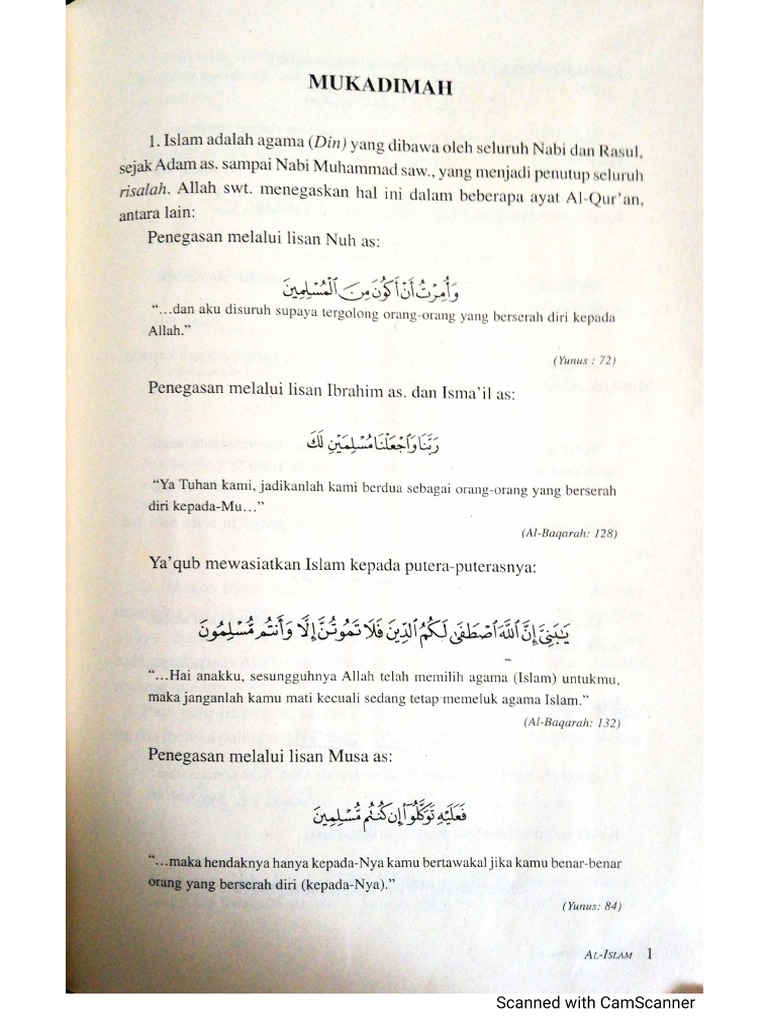 MUKADIMAH
1. Islam adalah agama (Din) yang dibawa oleh seluruh Nabi dan Rasul,
sejak Adam as. sampai Nabi Muhammad saw., yang menjadi penutup seluruh
risalah. Allah swt. menegaskan hal ini dalam beberapa ayat Al-Qur'an,
antara lain:
Penegasan melalui lisan Nuh as:
وَأُمِرْتُ أَنْ أَكُونَ مِنَ الْمُسْلِمِينَ
“...dan aku disuruh supaya tergolong orang-orang yang berserah diri kepada
Allah.”
(Yunus : 72)
Penegasan melalui lisan Ibrahim as. dan Isma'il as:
رَبَّنَا وَاجْعَلْنَا مُسْلِمَيْنِ لَكَ
“Ya Tuhan kami, jadikanlah kami berdua sebagai orang-orang yang berserah
diri kepada-Mu...”
(Al-Baqarah: 128)
Ya'qub mewasiatkan Islam kepada putera-puterasnya:
يَٰبَنِيَّ إِنَّ اللَّهَ اصْطَفَىٰ لَكُمُ الدِّينَ فَلَا تَمُوتُنَّ إِلَّا وَأَنْتُمْ مُسْلِمُونَ
“...Hai anakku, sesungguhnya Allah telah memilih agama (Islam) untukmu,
maka janganlah kamu mati kecuali sedang tetap memeluk agama Islam.”
(Al-Baqarah: 132)
Penegasan melalui lisan Musa as:
فَعَلَيْهِ تَوَكَّلُوا إِنْ كُنْتُمْ مُسْلِمِينَ
“...maka hendaknya hanya kepada-Nya kamu bertawakal jika kamu benar-benar
orang yang berserah diri (kepada-Nya).”
(Yunus: 84)
AL-ISLAM 1
Scanned with CamScanner